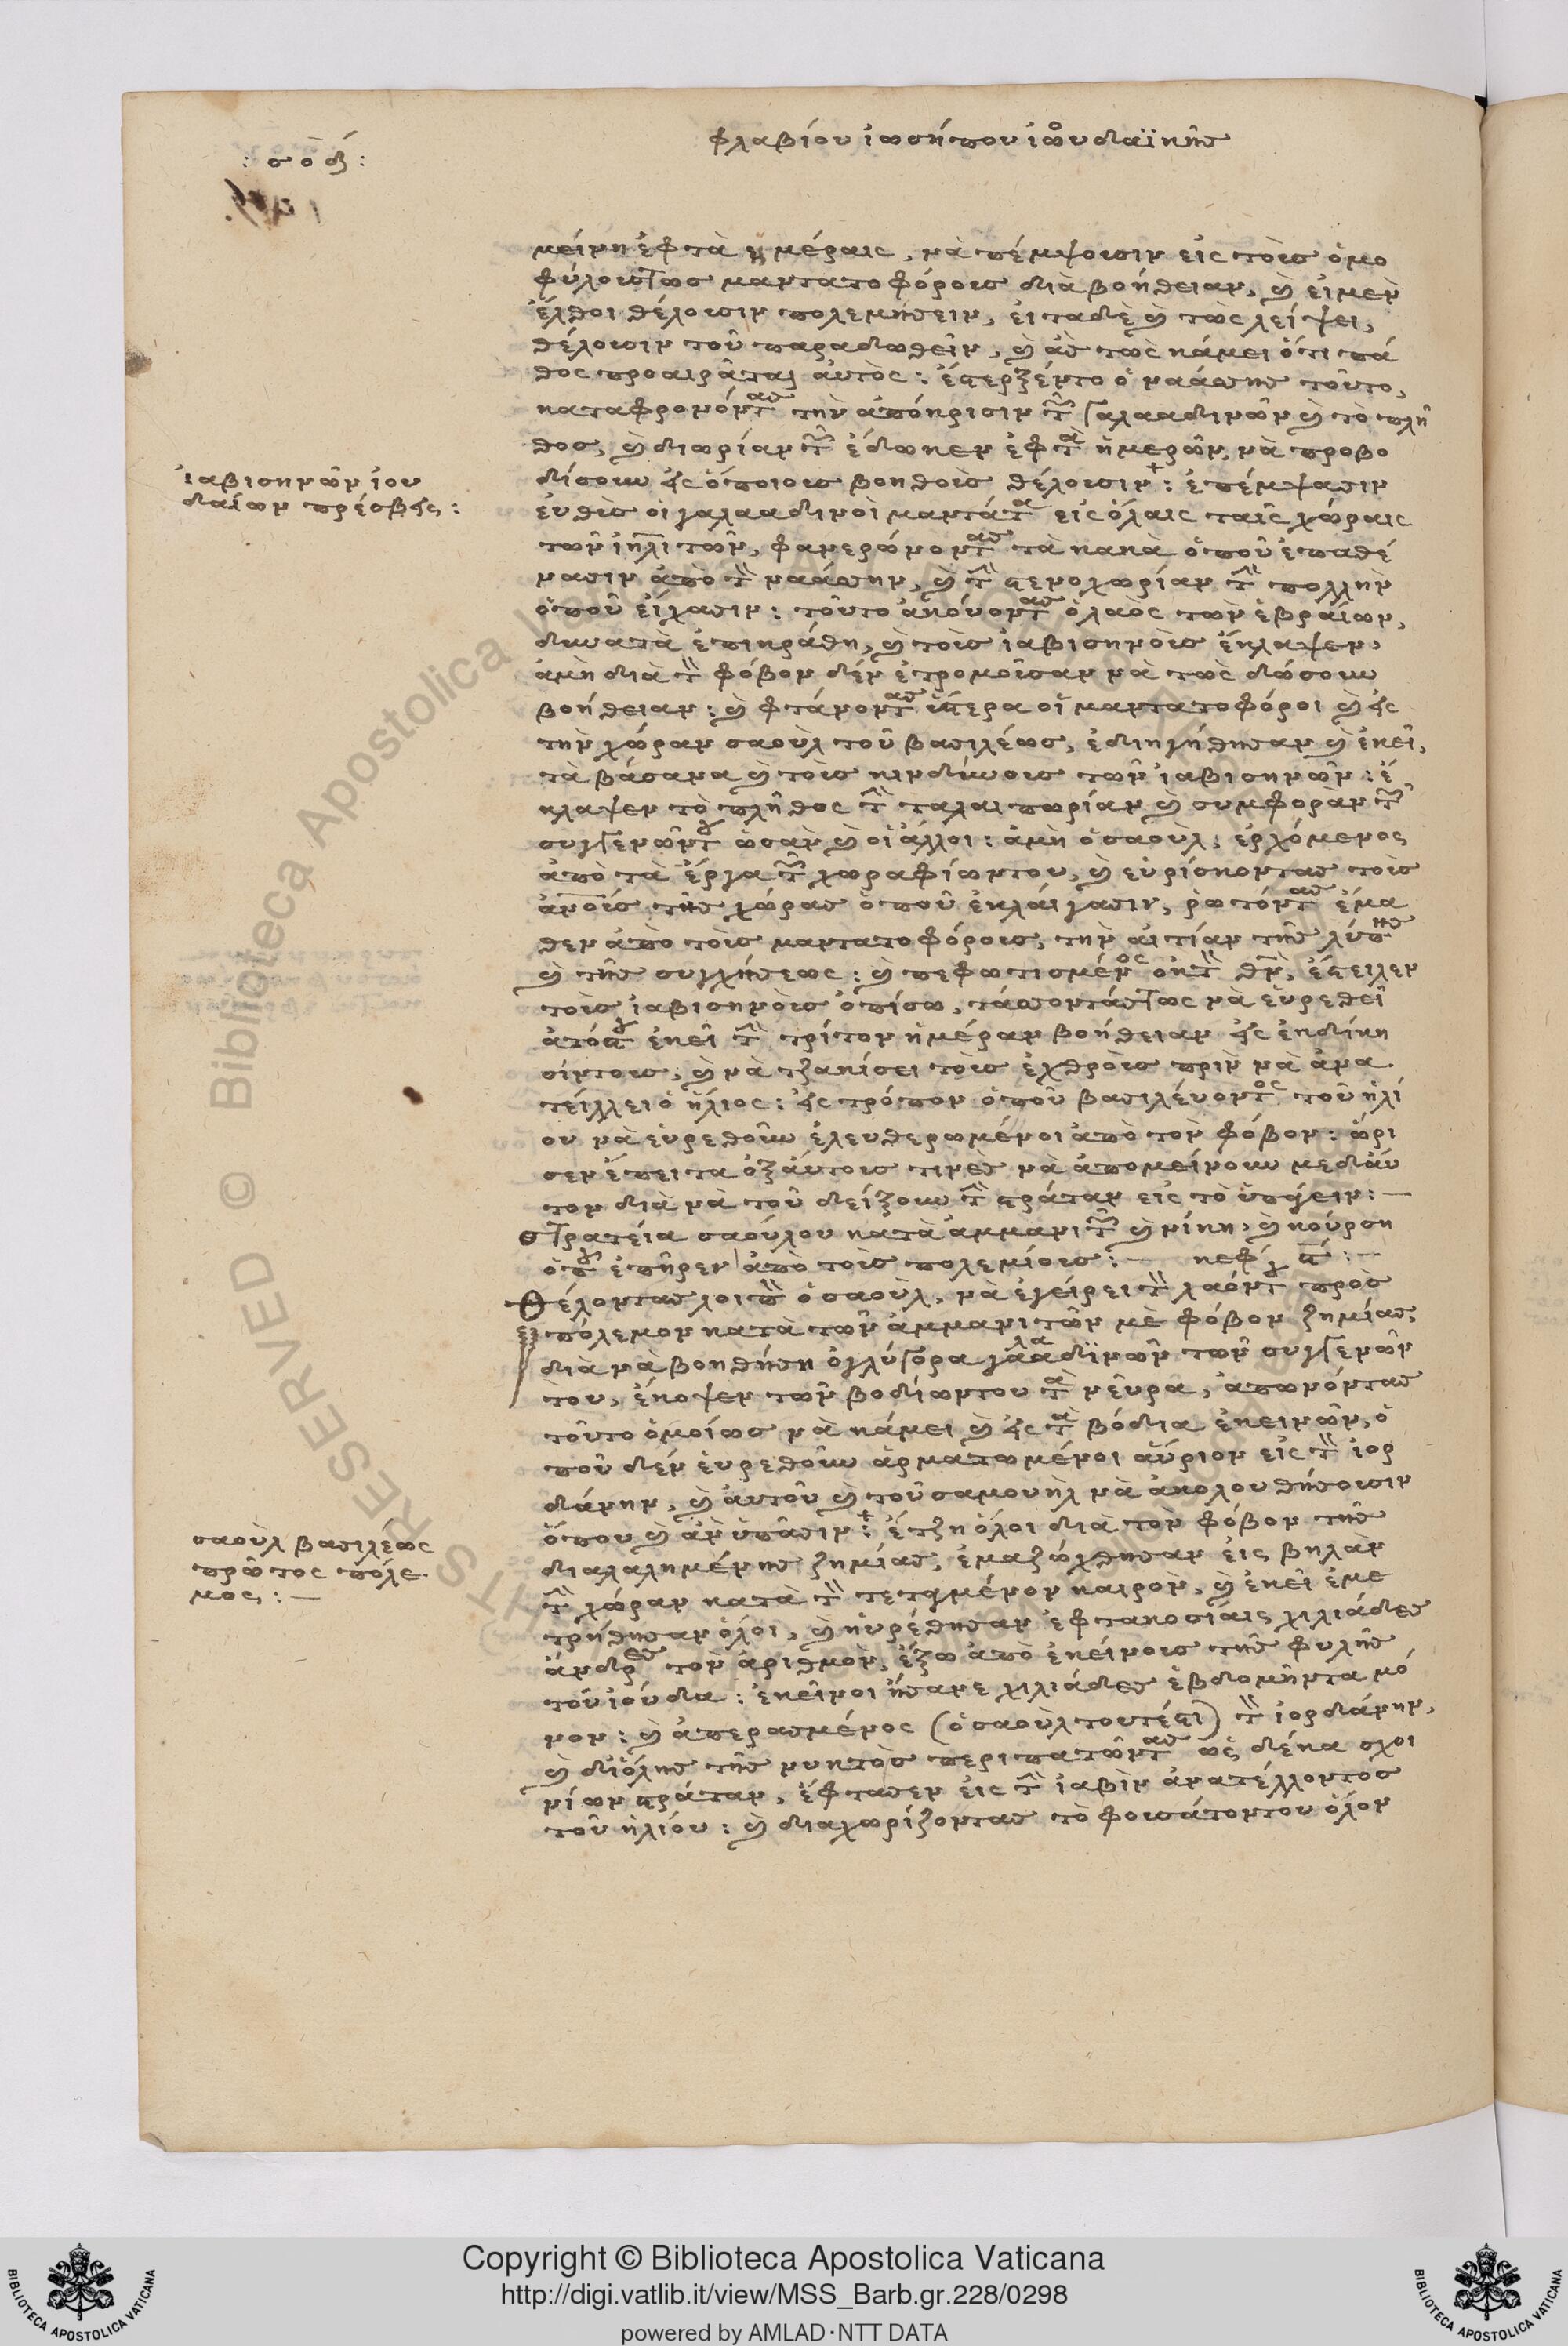 φλαβίου ἰωσήπου ἰουδαϊκῆς
: σ ο δ :
μείνη ἑφτὰ ἡμέραις, νὰ πέμψουσιν εἰς τοὺς ὁμο
φύλους τως μαντατοφόρους διὰ βοήθειαν, καὶ εἰ μὲν
ἔλθοι θέλουσιν πολεμήσειν, εἶτα δὲ καὶ τῶς λείψει,
θέλουσιν τοῦ παραδωθεῖν, καὶ ἂς τῶς κάμει ὅτι πά
θος προαιρᾶται αὐτὸς: ἔστερξέν το ὁ ναάσης τοῦτο,
καταφρονόντας τὴν ἀπόκρισιν τῶν γαλααδινῶν καὶ τὸ πλῆ
θος, καὶ διωρίαν τῶν ἔδωκεν ἑφτὰ ἡμερῶν, νὰ προβο
δίσουν εἰς ὁποίους βοηθοὺς θέλουσιν: ἐπέμψασιν
ἰαβισηνῶν ἰου
δαίων πρέσβεις:
εὐθὺς οἱ γαλααδινοὶ μαντάτα εἰς ὅλαις ταῖς χώραις
τῶν ἰηλιτῶν, φανερώνοντας τὰ κακὰ ὁποῦ ἐπαθέ
νασιν ἀπὸ τὸν ναάσην, καὶ τὴν στενοχωρίαν τὴν πολλὴν
ὁποῦ εἴχασιν: τοῦτο ἀκούοντας ὁ λαὸς τῶν ἑβραίων,
δυνατὰ ἐπικράθη, καὶ τοὺς ἰαβισηνοὺς ἔκλαψεν,
ἀμὴ διὰ τὸν φόβον δὲν ἐτρομοῦσαν νὰ τῶς δώσουν
βοήθειαν: καὶ φτάνοντας ὕστερα οἱ μαντατοφόροι καὶ εἰς
τὴν χώραν σαοὺλ τοῦ βασιλέως, ἐδιηγήθησαν καὶ ἐκεῖ,
τὰ βάσανα καὶ τοὺς κινδύνους τῶν ἰαβισηνῶν: ἔ
κλαψεν τὸ πλῆθος τὴν ταλαιπωρίαν καὶ συμφορὰν τῶν
συγγενῶν του ὡσὰν καὶ οἱ ἄλλοι: ἀμὴ ὁ σαοὺλ, ἐρχόμενος
ἀπὸ τὰ ἔργα τῶν χωραφίων του, καὶ εὑρίσκοντας τοὺς
ἀνοὺς τῆς χώρας ὁποῦ ἐκλαίγασιν, ῥωτόντας ἔμα
θεν ἀπὸ τοὺς μαντατοφόρους, τὴν αἰτίαν τῆς λύπης
καὶ τῆς συγχήσεως: καὶ πεφωτισμένος ἐκ τὸν θν, ἔστειλεν
τοὺς ἰαβισηνοὺς ὀπίσω, τάσσοντάς τως νὰ εὑρεθεῖ
ἀτός του ἐκεῖ τὴν τρίτον ἡμέραν βοήθειαν εἰς ἐκδίκη
σίν τους, καὶ νὰ τζακίσει τοὺς ἐχθροὺς πρὶν νὰ ἀνα
τείλλει ὁ ἥλιος: εἰς τρόπον ὁποῦ βασιλεύοντος τοῦ ἡλί
ου νὰ εὑρεθοῦν ἐλευθερωμένοι ἀπὸ τὸν φόβον: ὥρι
σεν ἔπειτα ὀξαύτους τινὲς νὰ ἀπομείνουν μεδαύ
τον διὰ νὰ τοῦ δείξουν τὴν στράταν εἰς τὸ ὑπάγειν: —
στρατεία σαούλου κατὰ ἀμμανιτῶν καὶ νίκη, καὶ κούρση
ὁποῦ ἐπῆρεν ἀπὸ τοὺς πολεμίους: — κεφ
Θέλοντας λοιπὸν ὁ σαοὺλ, νὰ ἐγείρει τὸν λαόν του πρὸς
πόλεμον κατὰ τῶν ἀμμανιτῶν μὲ φόβον ζημίας,
διὰ νὰ βοηθήση ὀγλύγορα γαλααδϊνῶν τῶν συγγενῶν
του, ἔκοψεν τῶν βοδίων του τὰ νεῦρα, ἀπωνόντας
τοῦτο ὁμοίως νὰ κάμει καὶ εἰς τὰ βόδια ἐκεινῶν, ὁ
ποῦ δὲν εὑρεθοῦν ἁρματωμένοι αὔριον εἰς τὸν ἰορ
δάνην, καὶ αὐτοῦ καὶ τοῦ σαμουὴλ νὰ ἀκολουθήσουσιν
ὅπου καὶ ἂν ὑπᾶσιν: ἔτζη ὅλοι διὰ τὸν φόβον τῆς
σαοὺλ βασιλέως
πρῶτος πόλε
μος: —
διαλαλημένης ζημίας, ἐμαζώχθησαν εἰς βηλὰν
τὴν χώραν κατὰ τὸν τεταγμένον καιρὸν, καὶ ἐκεῖ ἐμε
τρήθησαν ὅλοι, καὶ ηὑρέθησαν ἑφτακοσίαις χιλιάδες
ἄνδρες τὸν ἀριθμὸν, ἔξω ἀπὸ ἐκείνους τῆς φυλῆς
τοῦ ἰούδα: ἐκεῖνοι ἦσανε χιλιάδες ἑβδομῆντα μό
νον: καὶ ἀπερασμένος (ὁ σαοὺλ τουτέστι) τὸν ἰορδάνην,
καὶ δι' ὅλης τῆς νυκτὸς περιπατῶντας ὡς δέκα σχοι
νίων στράταν, ἔφτασεν εἰς τὴν ἰαβὶν ἀνατέλλοντος
τοῦ ἡλίου: καὶ διαχωρίζοντας τὸ φουσάτον του ὅλον
Copyright © Biblioteca Apostolica Vaticana
http://digi.vatlib.it/view/MSS_Barb.gr.228/0298
powered by AMLAD·NTT DATA
BIBLIOTECA APOSTOLICA VATICANA
BIBLIOTECA APOSTOLICA VATICANA